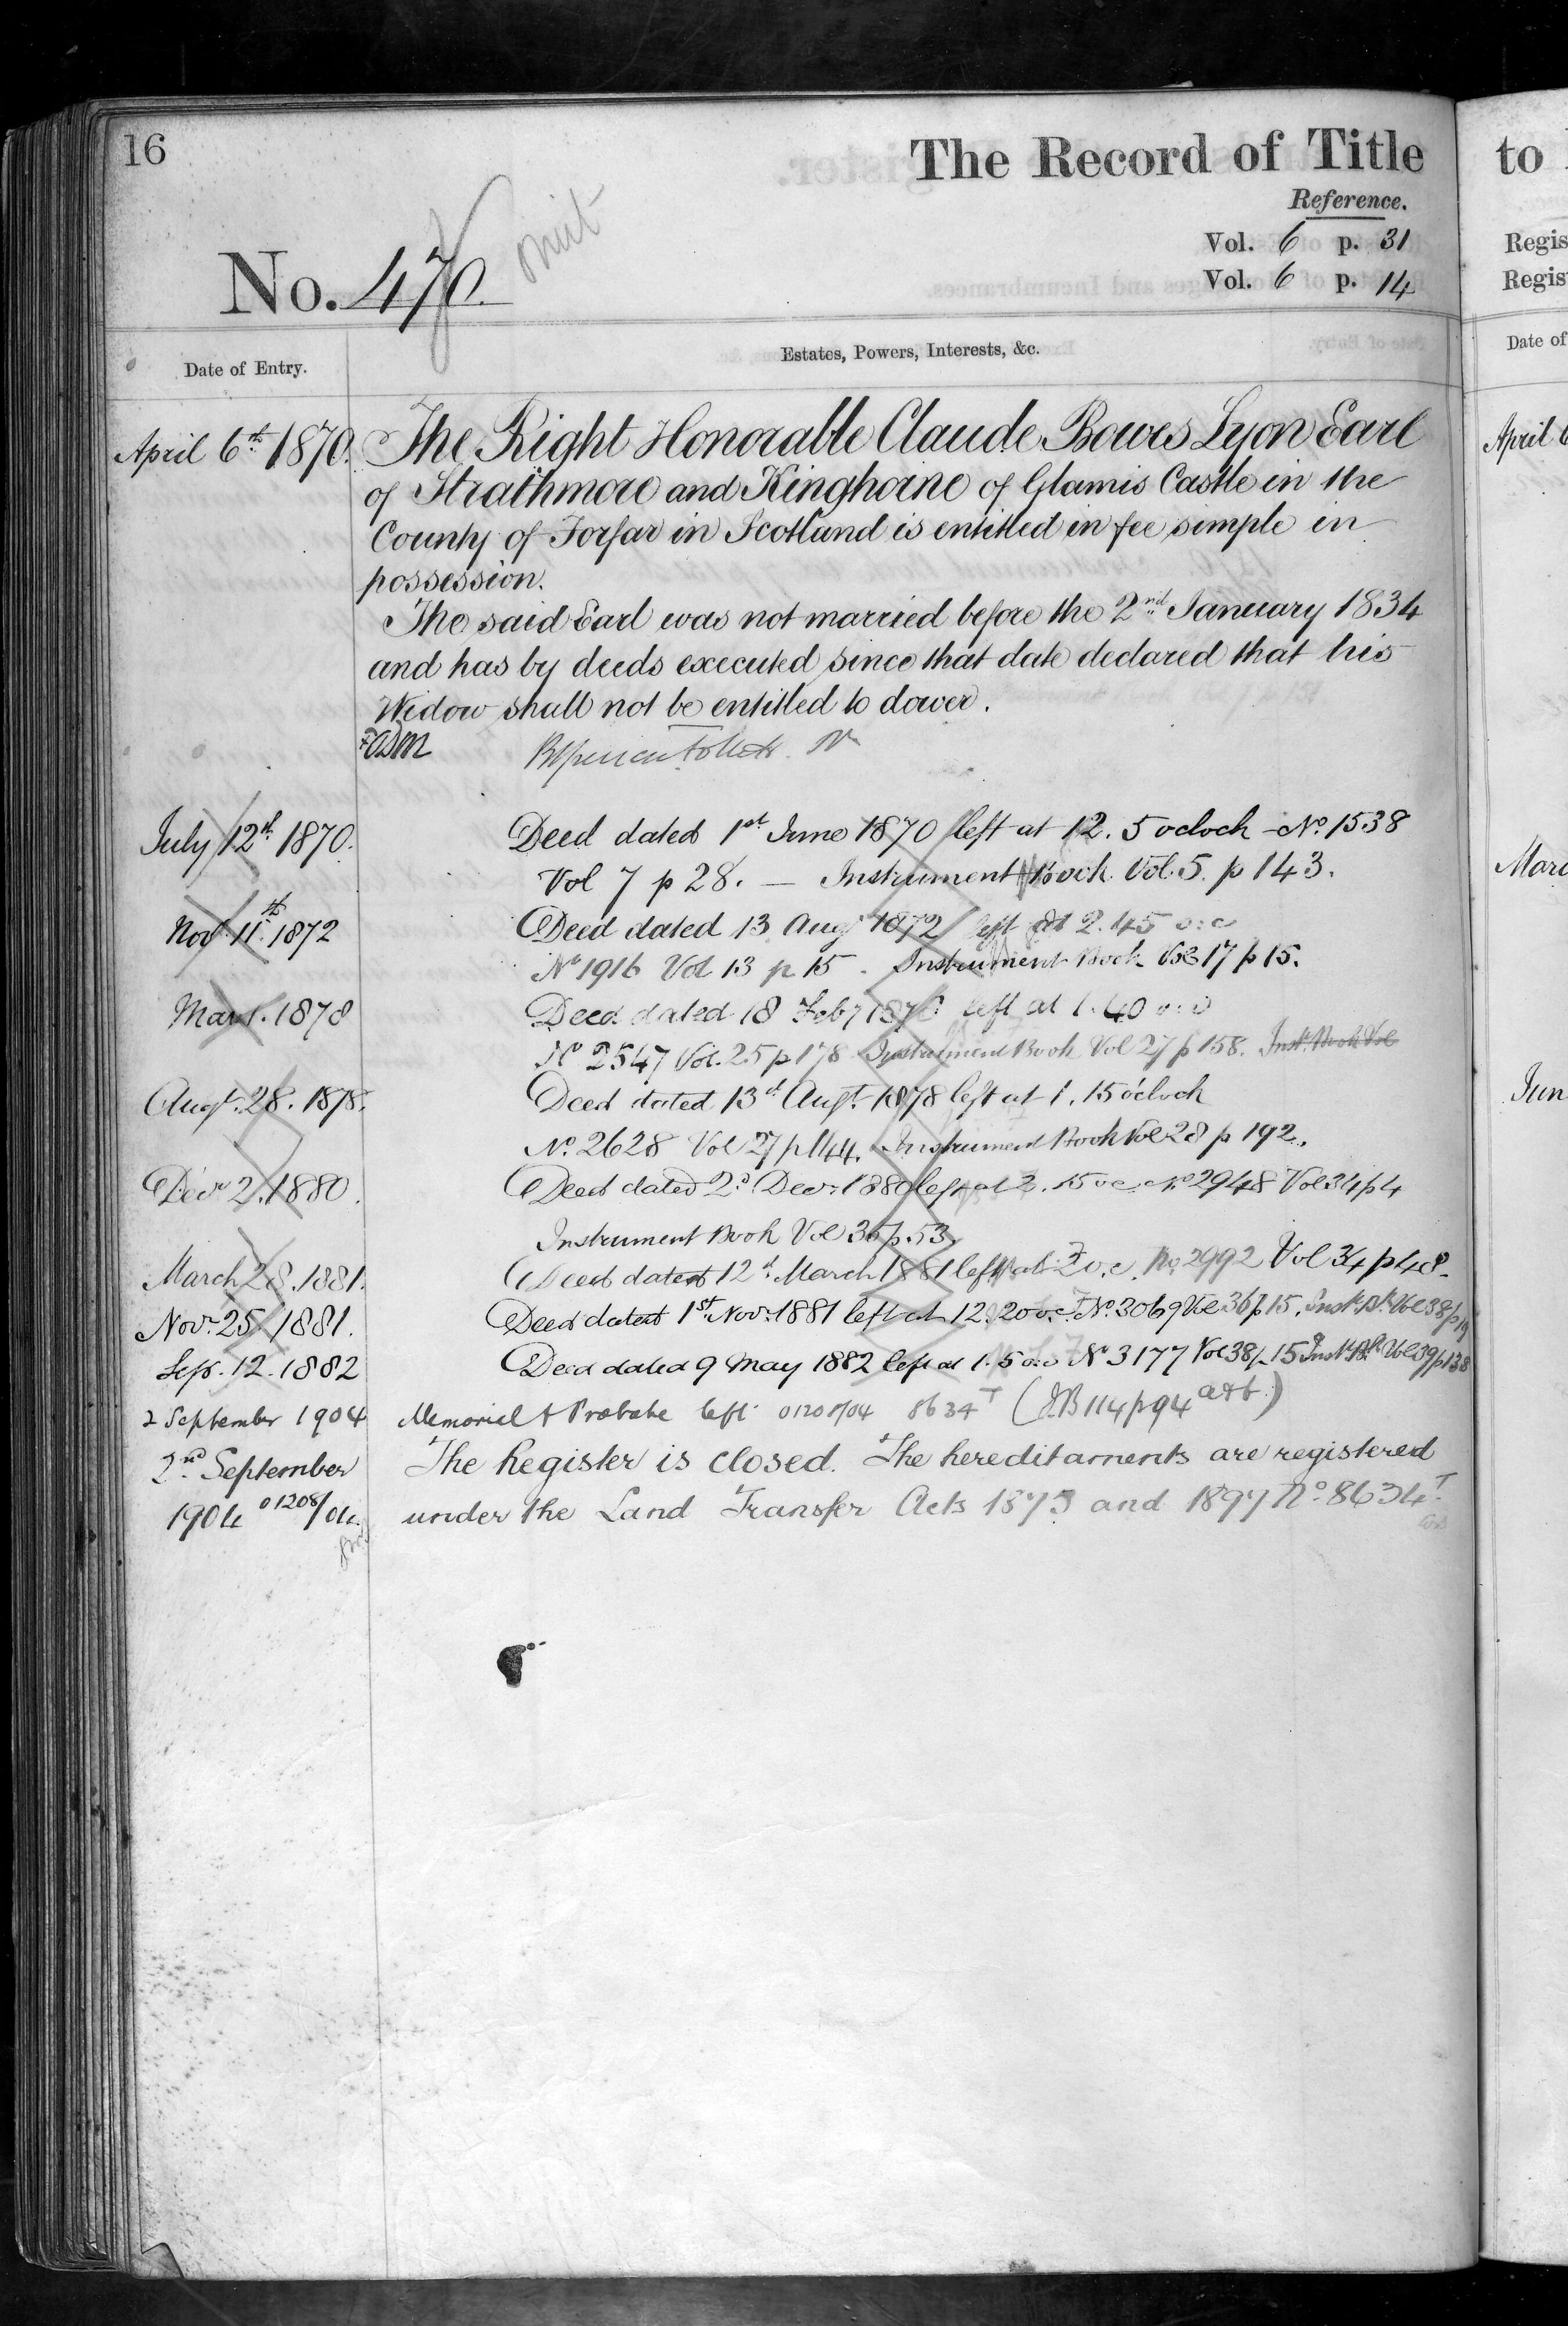 16
The Record of Title
to
Reference.
Vol. 6 p. 31
Vol. 6 p. 14
Regis
Regis
No. 470.
omit
Date of Entry.
Estates, Powers, Interests, &c.
Date of
April 6th 1870. The Right Honorable Claude Bowes Lyon Earl
April 6
of Strathmore and Kinghorne of Glamis Castle in the
County of Forfar in Scotland is entitled in fee simple in
possession.
The said Earl was not married before the 2nd January 1834
and has by deeds executed since that date declared that his
Widow shall not be entitled to dower.
July 12th 1870. Deed dated 1st June 1870 left at 12. 5 oclock - No. 1538
Vol 7 p 28. — Instrument Book Vol. 5. p 143.
Marc
Nov. 11th 1872 Deed dated 13 Aug 1872 left at 2.45 o:c
No 1916 Vol 13 p 15. Instrument Book Vol 17 p 15.
Mar 1. 1878 Deed dated 18 Feby 1878 left at 1.40 o:c
No 2547 Vol. 25 p 178 Instrument Book Vol 27 p 158. Inst. Book Vol
Augt. 28. 1878. Deed dated 13th Augt. 1878 left at 1. 15 o'clock
Jun
No. 2628 Vol 27 p 144. Instrument Book Vol 28 p 192.
Decr 2. 1880. Deed dated 2d Decr. 1880 left at 2. 15 oc. No 2948 Vol 34 p 4
Instrument Book Vol 36 p. 53.
March 28. 1881. Deed dated 12th March 1881 left at 2 o.c. No. 2992 Vol 34 p 48.
Novr. 25. 1881. Deed dated 1st Novr. 1881 left at 12.20 o.c. No. 3069 Vol 36 p 15. Inst. Bk. Vol 38 p 19
Sep. 12. 1882 Deed dated 9 May 1882 left at 1.5 o:c No 3177 Vol 38 p 15 Inst. Bk Vol 39 p 138
2 September 1904 Memorial & Probate left 01208/04 8634T (I.B 114 p 94 a & b)
2nd September The Register is closed. The hereditaments are registered
1904 01208/04. under the Land Transfer Acts 1875 and 1897 No. 8634T.